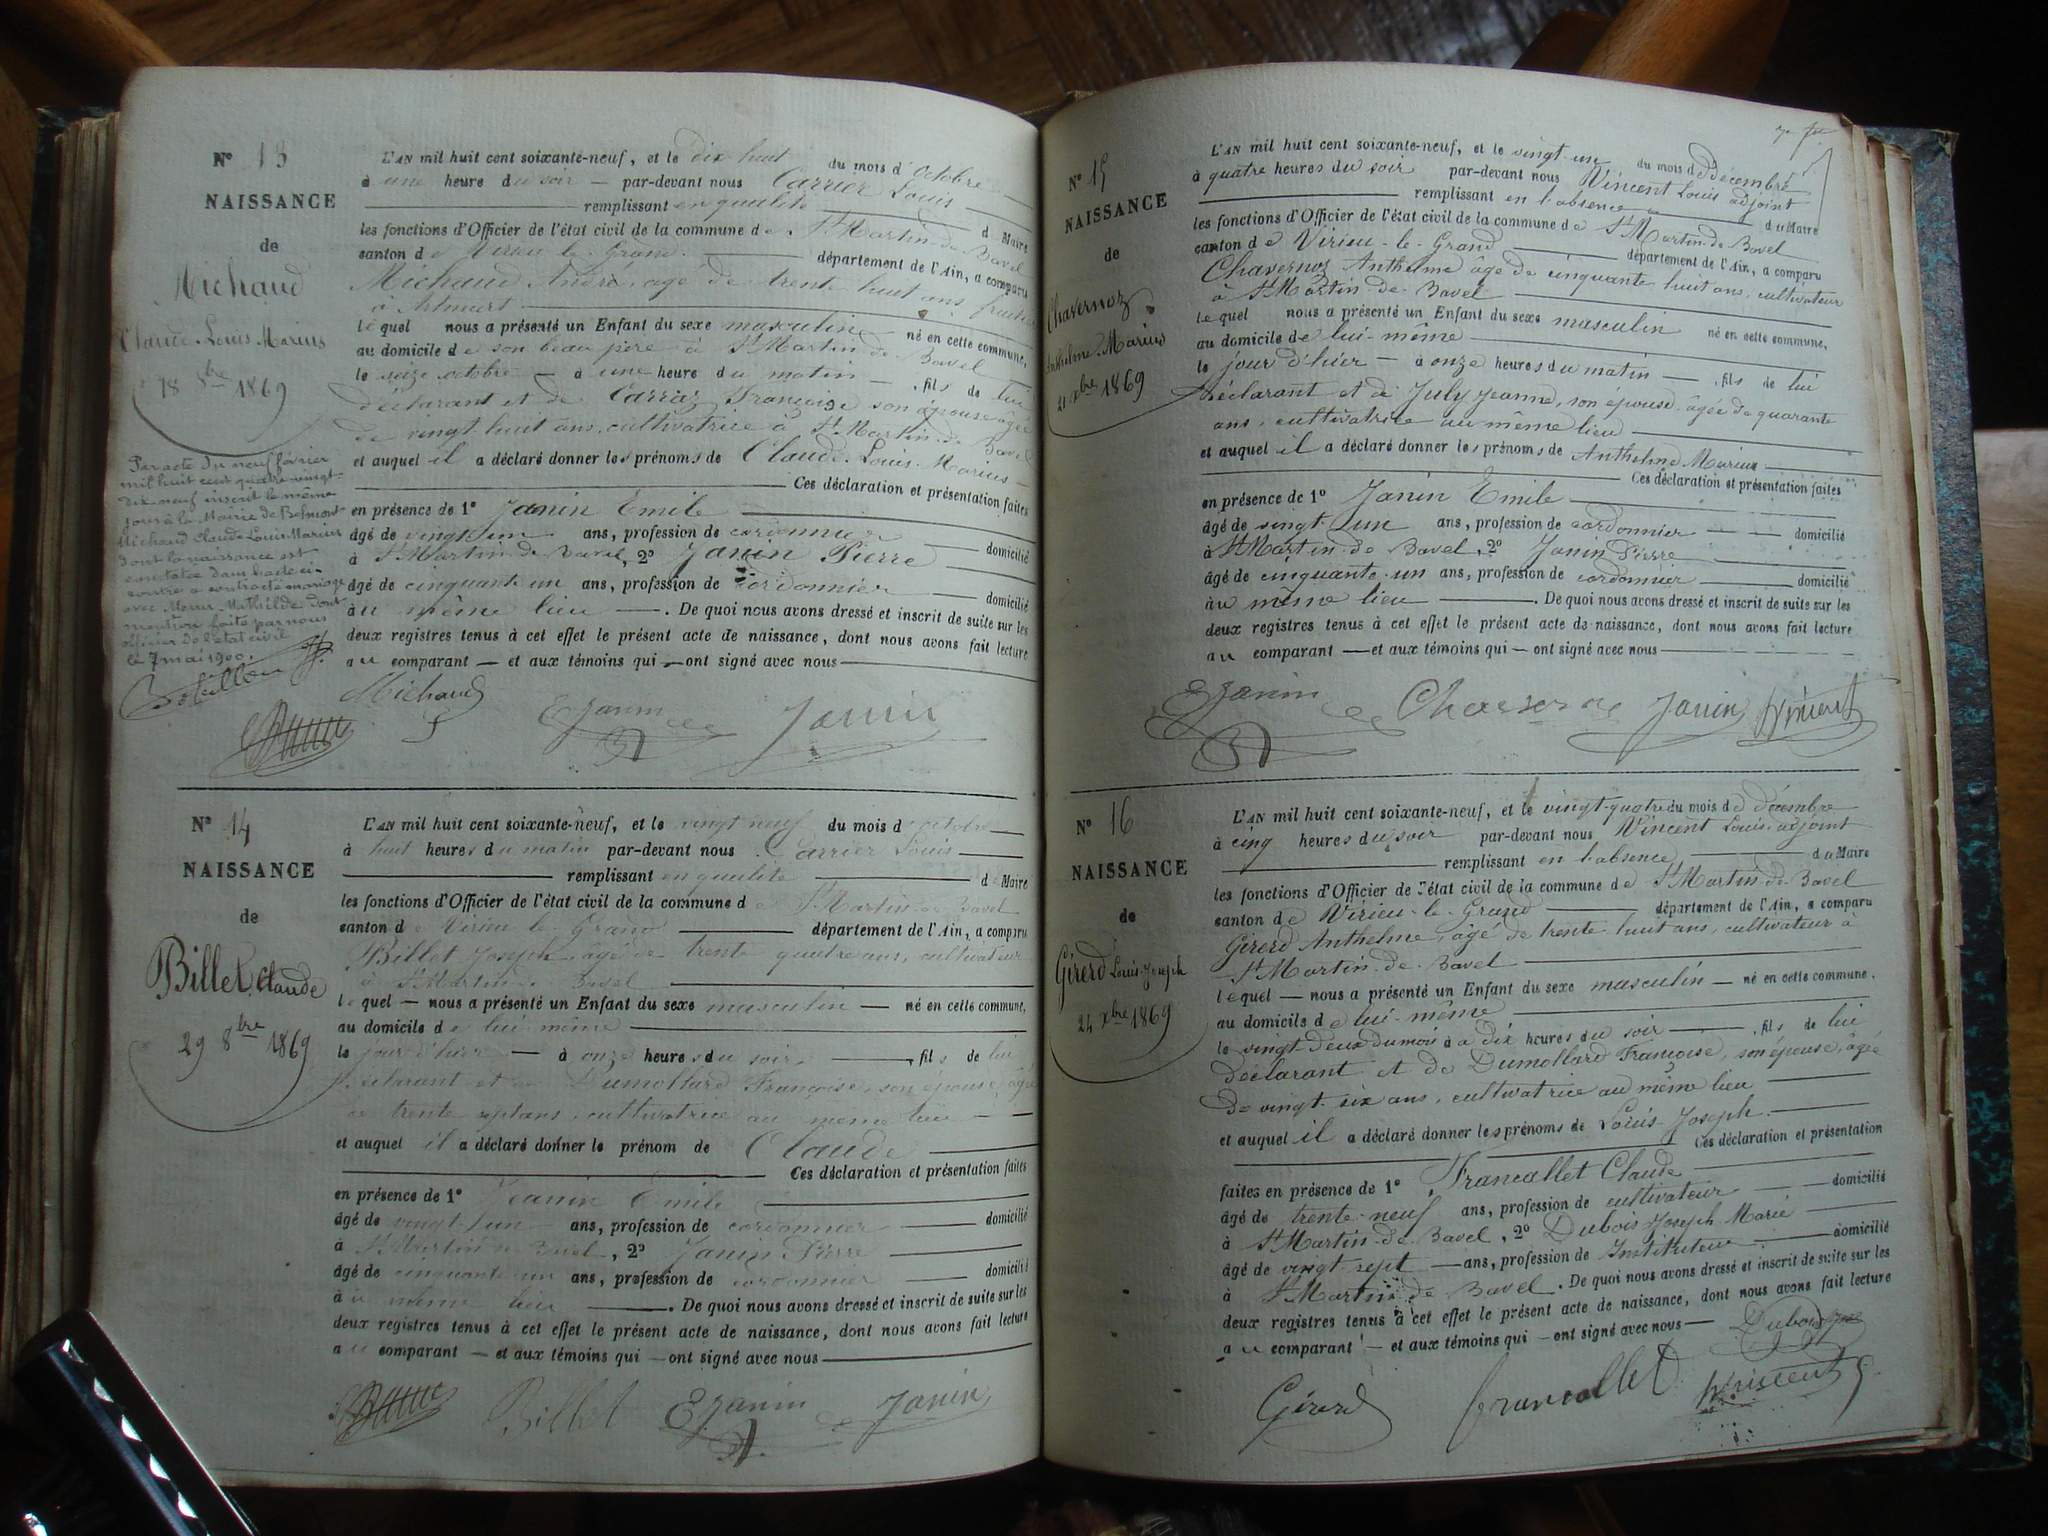 N° 13
NAISSANCE
de
Michaud
Claude-Louis-Marius
18 8bre 1869
Par acte du neuf février
mil huit cent quatre-vingt-
dix-neuf inscrit le même
jour à la Mairie de Belmont
Michaud Claude Louis Marius
dont la naissance est
constatée dans l'acte ci-
contre a contracté mariage
avec Mathilde dont
mention faite par nous
officier de l'état civil
le 7 mai 1900.
L'AN mil huit cent soixante-neuf, et le dix huit du mois d'octobre
à une heure du soir — par-devant nous Carrier Louis
remplissant en qualité de Maire
les fonctions d'Officier de l'état civil de la commune de St Martin-de-Bavel
canton de Virieu-le-Grand département de l'Ain, a comparu
Michaud André, âgé de trente huit ans,
à
lequel nous a présenté un Enfant du sexe masculin né en cette commune,
au domicile de son beau père à St Martin de Bavel
le seize octobre — à une heure du matin — , fils de lui
déclarant et de Carraz Françoise son épouse âgée
de vingt-huit ans, cultivatrice à St Martin-de-Bavel
et auquel il a déclaré donner les prénoms de Claude-Louis-Marius
Ces déclaration et présentation faites
en présence de 1° Janin Emile
âgé de vingt-un ans, profession de cordonnier domicilié
à St Martin-de-Bavel, 2° Janin Pierre
âgé de cinquante-un ans, profession de cordonnier domicilié
au même lieu —. De quoi nous avons dressé et inscrit de suite sur les
deux registres tenus à cet effet le présent acte de naissance, dont nous avons fait lecture
au comparant — et aux témoins qui — ont signé avec nous
Michaud EJanin Janin
N° 14
NAISSANCE
de
Billet, Claude
29 8bre 1869
L'AN mil huit cent soixante-neuf, et le vingt neuf du mois d'octobre
à huit heures du matin par-devant nous Carrier Louis
remplissant en qualité de Maire
les fonctions d'Officier de l'état civil de la commune de St Martin-de-Bavel
canton de Virieu-le-Grand département de l'Ain, a comparu
Billet Joseph, âgé de trente quatre ans, cultivateur
à St Martin-de-Bavel
lequel — nous a présenté un Enfant du sexe masculin — né en cette commune,
au domicile de lui-même
le jour d'hier — à onze heures du soir , fils de lui
déclarant et de Dumollard Françoise, son épouse, âgée
de trente sept ans, cultivatrice au même lieu
et auquel il a déclaré donner le prénom de Claude
Ces déclaration et présentation faites
en présence de 1° Jeanin Emile
âgé de vingt-un ans, profession de cordonnier domicilié
à St Martin de Bavel, 2° Janin Pierre
âgé de cinquante un ans, profession de cordonnier domicilié
au même lieu —. De quoi nous avons dressé et inscrit de suite sur les
deux registres tenus à cet effet le présent acte de naissance, dont nous avons fait lecture
au comparant — et aux témoins qui — ont signé avec nous
Billet EJanin Janin
N° 15
NAISSANCE
de
Chavernoz
Anthelme-Marius
21 xbre 1869
L'AN mil huit cent soixante-neuf, et le vingt-un du mois de décembre
à quatre heures du soir par-devant nous Vincent Louis adjoint
remplissant en l'absence du Maire
les fonctions d'Officier de l'état civil de la commune de St Martin-de-Bavel
canton de Virieu-le-Grand département de l'Ain, a comparu
Chavernoz Anthelme âgé de cinquante huit ans, cultivateur
à St Martin-de-Bavel
lequel nous a présenté un Enfant du sexe masculin né en cette commune,
au domicile de lui-même
le jour d'hier — à onze heures du matin — , fils de lui
déclarant et de July Jeanne, son épouse âgée de quarante
ans, cultivatrice au même lieu
et auquel il a déclaré donner les prénoms de Anthelme Marius
Ces déclaration et présentation faites
en présence de 1° Janin Emile
âgé de vingt-un ans, profession de cordonnier domicilié
à St Martin-de-Bavel, 2° Janin Pierre
âgé de cinquante-un ans, profession de cordonnier domicilié
au même lieu —. De quoi nous avons dressé et inscrit de suite sur les
deux registres tenus à cet effet le présent acte de naissance, dont nous avons fait lecture
au comparant — et aux témoins qui — ont signé avec nous
EJanin Janin Vincent
N° 16
NAISSANCE
de
Gérerd Louis-Joseph
24 xbre 1869
L'AN mil huit cent soixante-neuf, et le vingt-quatre du mois de décembre
à cinq heures du soir par-devant nous Vincent Louis adjoint
remplissant en l'absence du Maire
les fonctions d'Officier de l'état civil de la commune de St Martin-de-Bavel
canton de Virieu-le-Grand département de l'Ain, a comparu
Gérerd Anthelme, âgé de trente huit ans, cultivateur à
St Martin-de-Bavel
lequel — nous a présenté un Enfant du sexe masculin — né en cette commune,
au domicile de lui-même
le vingt-deux du mois à dix heures du soir , fils de lui
déclarant et de Dumollard Françoise, son épouse, âgée
de vingt-six ans, cultivatrice au même lieu
et auquel il a déclaré donner les prénoms de Louis-Joseph
Ces déclaration et présentation
faites en présence de 1° Francallet Claude
âgé de trente-neuf ans, profession de cultivateur domicilié
à St Martin-de-Bavel, 2° Dubois Joseph Marie
âgé de vingt sept — ans, profession de Instituteur domicilié
à St Martin de Bavel. De quoi nous avons dressé et inscrit de suite sur les
deux registres tenus à cet effet le présent acte de naissance, dont nous avons fait lecture
au comparant — et aux témoins qui — ont signé avec nous — Dubois
Gérerd francallet Vincent